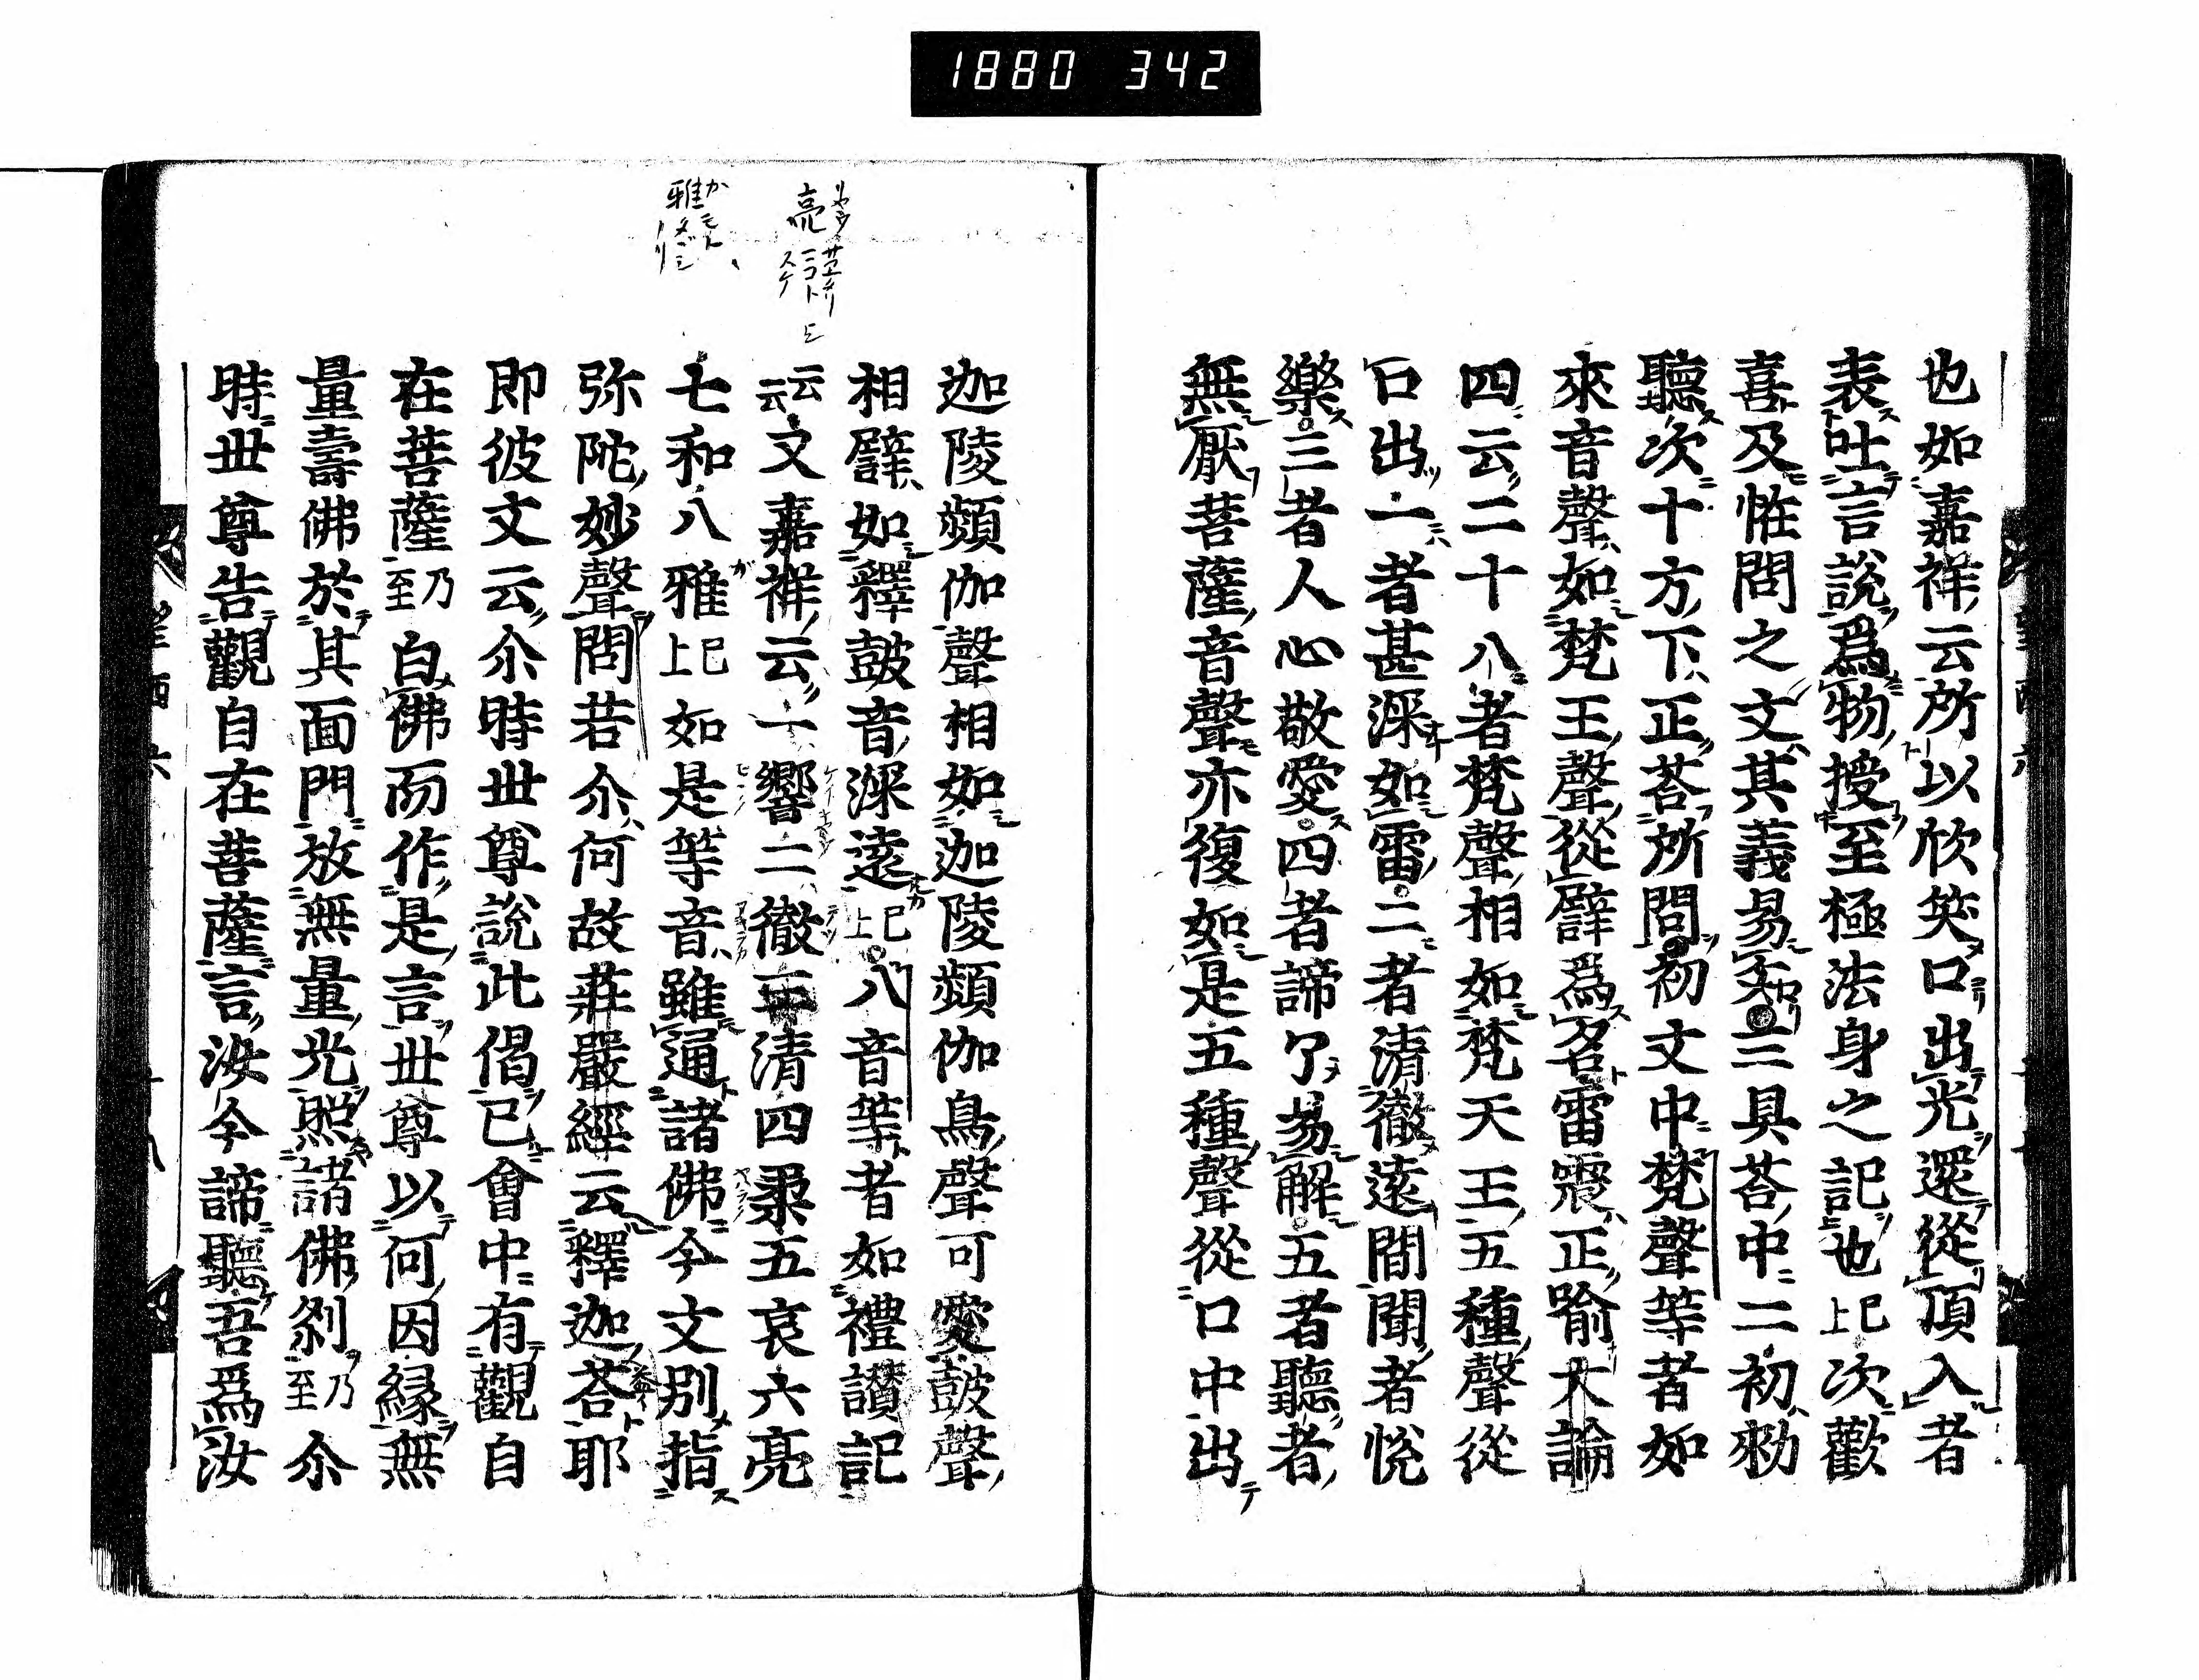 1880 342
也如嘉祥云所以欣笑口出光還從頂入者
表吐言說爲物授至極法身之記也已上次歡
喜及恠問之文其義易知三具荅中二初勑
聽次十方下正荅所問初文中梵聲等者如
來音聲如梵王聲從譬爲名雷震正喻大論
四云二十八者梵聲相如梵天王五種聲從
口出一者甚深如雷二者清徹遠聞聞者悅
樂三者人心敬愛四者諦了易解五者聽者
無厭菩薩音聲亦復如是五種聲從口中出
迦陵頻伽聲相如迦陵頻伽鳥聲可愛鼓聲
相譬如釋鼓音深遠已上八音等者如禮讃記
云云又嘉祥云一響二徹三清四柔五哀六亮
七和八雅已上如是等音雖通諸佛今文別指
弥陀妙聲問若尒何故莊嚴經云釋迦荅耶
即彼文云尒時世尊說此偈已會中有觀自
在菩薩乃至白佛而作是言世尊以何因縁無
量壽佛於其面門放無量光照諸佛刹乃至尒
時世尊告觀自在菩薩言汝今諦聽吾爲汝
亮
雅